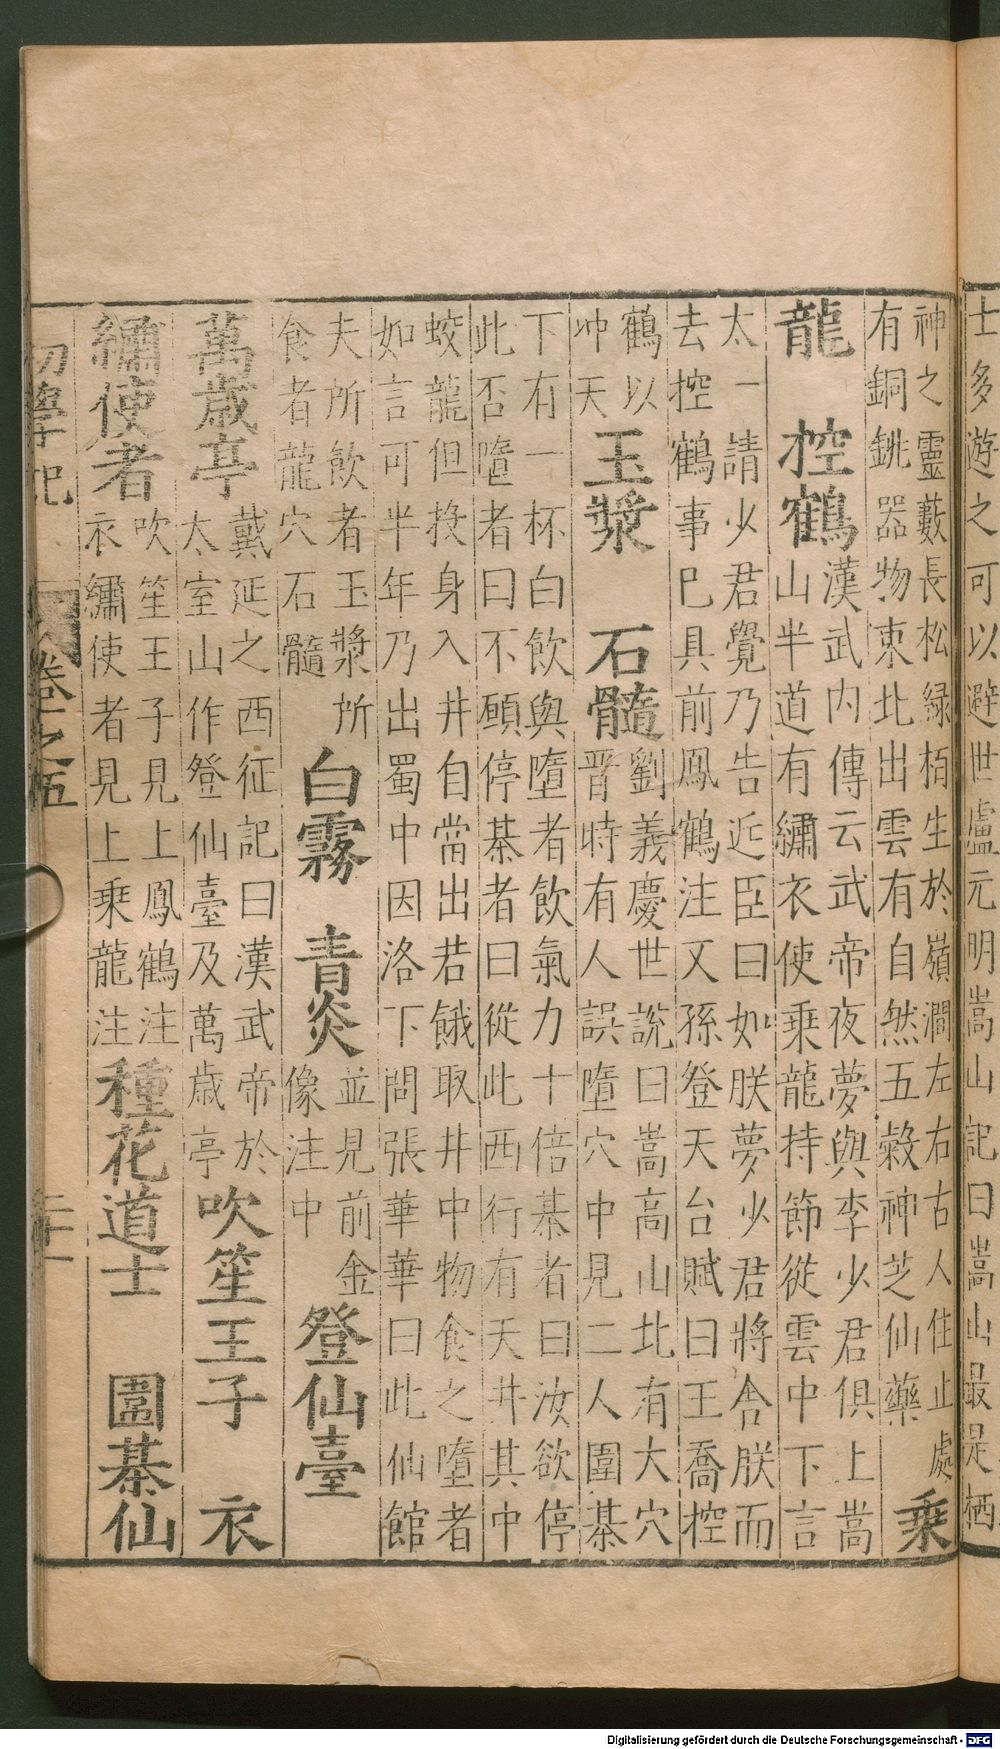 士多遊之可以避世盧元明嵩山記曰嵩山最是栖
神之靈藪長松緑栢生於嶺澗左右古人住止處
有銅銚器物東北出雲有自然五穀神芝仙藥
乘
龍　控鶴
漢武内傳云武帝夜夢與李少君俱上嵩
山半道有繡衣使乘龍持節從雲中下言
太一請少君覺乃告近臣曰如朕夢少君將舍朕而
去控鶴事巳具前鳳鶴注又孫登天台賦曰王喬控
鶴以
冲天
玉漿　石髓
劉義慶世說曰嵩高山北有大穴
晋時有人誤墮穴中見二人圍棊
下有一杯白飲與墮者飲氣力十倍棊者曰汝欲停
此否墮者曰不願停棊者曰從此西行有天井其中
蛟龍但投身入井自當出若餓取井中物食之墮者
如言可半年乃出蜀中因洛下問張華華曰此仙館
夫所飲者玉漿所
食者龍穴石髓
白霧　青炎
並見前金
像注中
登仙臺
萬歲亭
戴延之西征記曰漢武帝於
太室山作登仙臺及萬歲亭
吹笙王子　衣
繡使者
吹笙王子見上鳳鶴注
衣繡使者見上乘龍注
種花道士　圍棊仙
初學記　卷之五　二十一
Digitalisierung gefördert durch die Deutsche Forschungsgemeinschaft - DFG